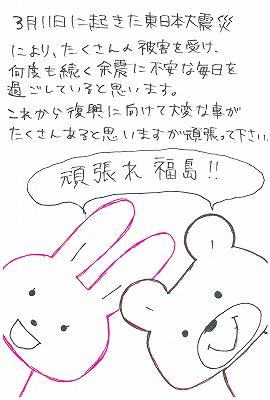 3月11日に起きた東日本大震災
により、たくさんの被害を受け、
何度も続く余震に不安な毎日を
過ごしていると思います。
これから復興に向けて大変な事が
たくさんあると思いますが頑張って下さい。
頑張れ福島!!